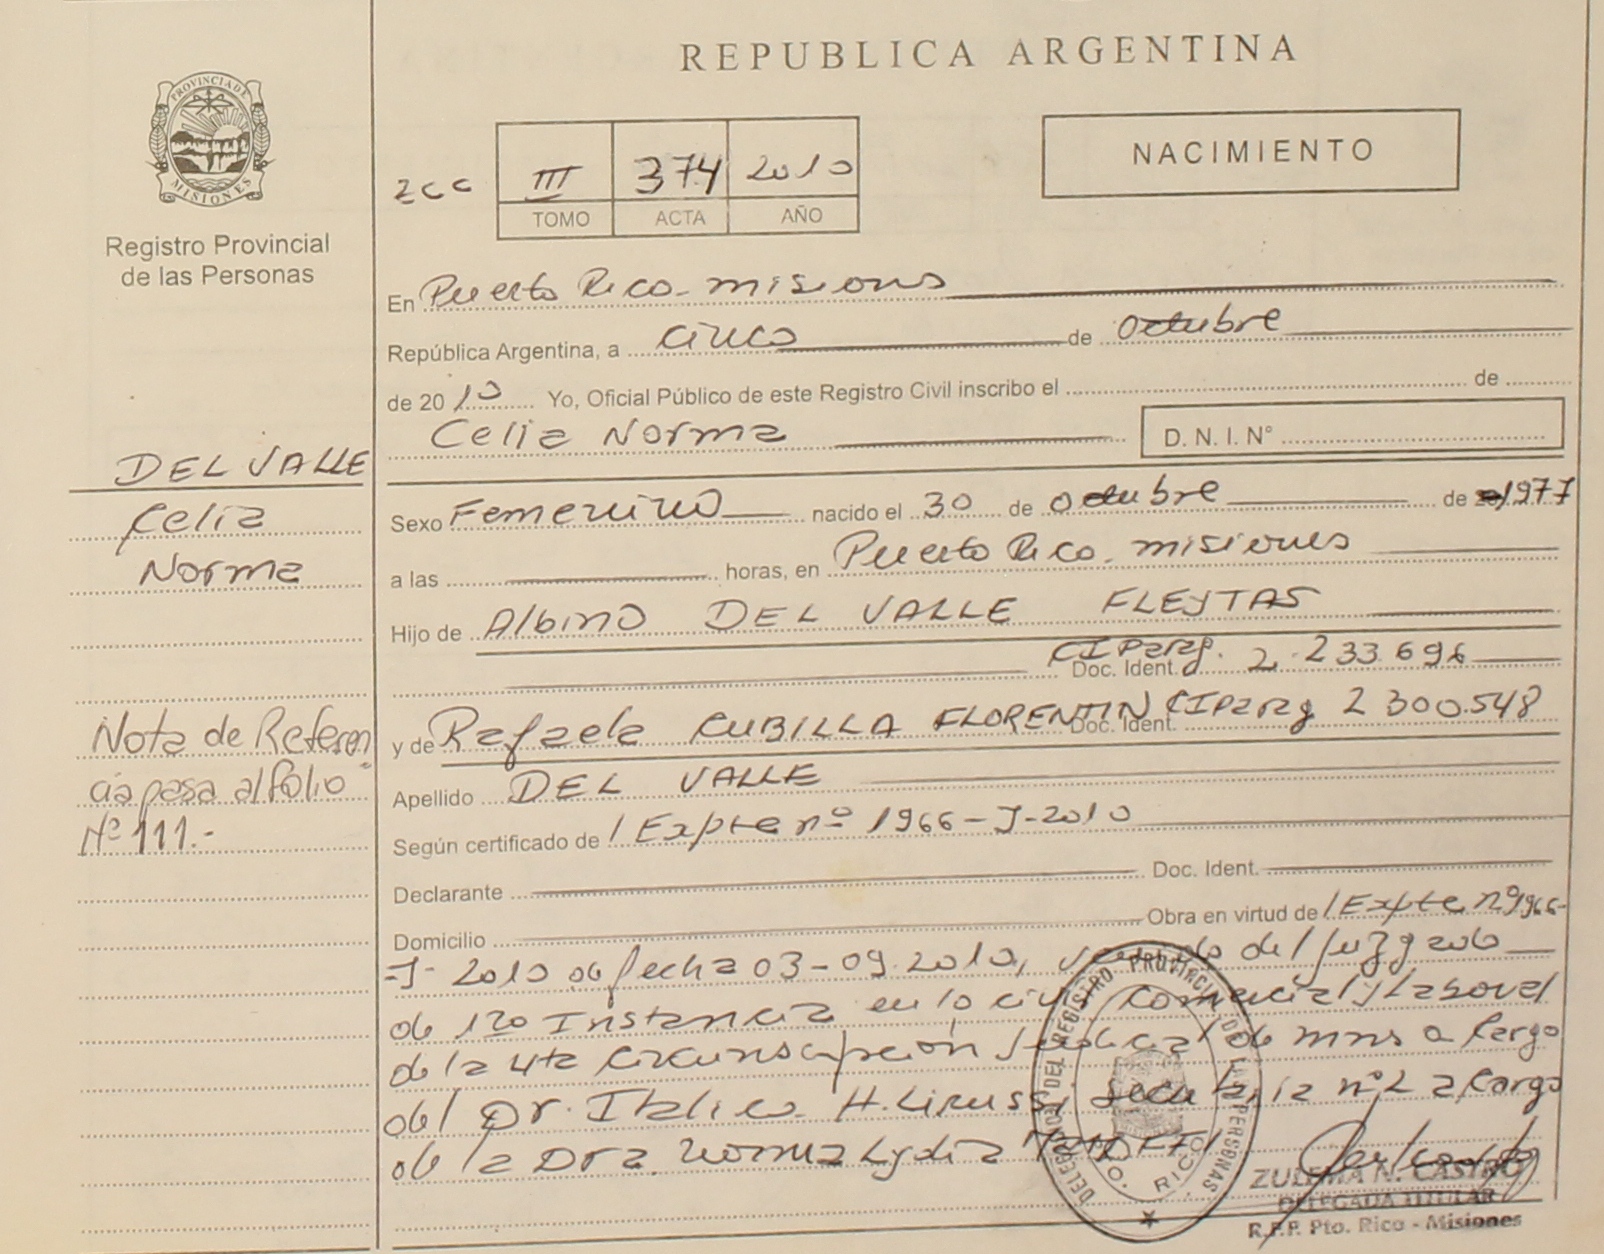 REPUBLICA ARGENTINA
PROVINCIA DE
MISIONES
Registro Provincial
de las Personas
NACIMIENTO
III 374 2010
TOMO ACTA AÑO
En Puerto Rico - misiones
República Argentina, a cinco de Octubre
de 2010 Yo, Oficial Público de este Registro Civil inscribo el de
Celia Norma D. N. I. N°
DEL VALLE
Celia
Norma
Sexo Femenino nacido el 30 de Octubre de 1977
a las horas, en Puerto Rico - misiones
Hijo de Albino DEL VALLE FLEYTAS
Doc. Ident. CI Parag. 2.233.696
y de Rafaela CUBILLA FLORENTIN Doc. Ident. CI Parag 2300.548
Nota de Referen
cia pasa al folio
Nº 111.-
Apellido DEL VALLE
Según certificado de / Expte nº 1966-J-2010
Declarante Doc. Ident.
Domicilio Obra en virtud de / Expte nº 1966-
J-2010 de fecha 03-09-2010, del Juzgado
de 1ra Instancia en lo civil comercial y Laboral
de la 4ta Circunscripción Judicial de mns a Cargo
del Dr. Italico H. Secretaria nº a Cargo
de la Dra. Norma Lydia
DELEGACION DEL REGISTRO PROVINCIAL DE LAS PERSONAS
PTO. RICO
ZULEMA N. CASTRO
DELEGADA TITULAR
R.P.P. Pto. Rico - Misiones